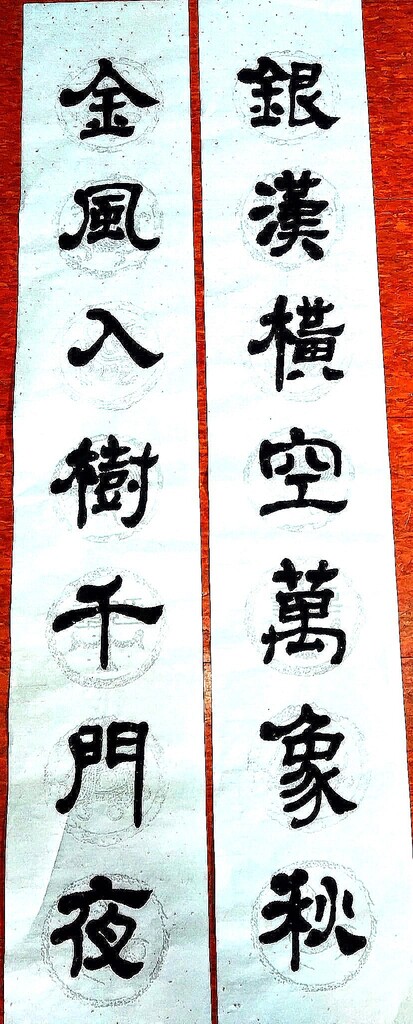 銀漢橫空萬象秋
金風入樹千門夜